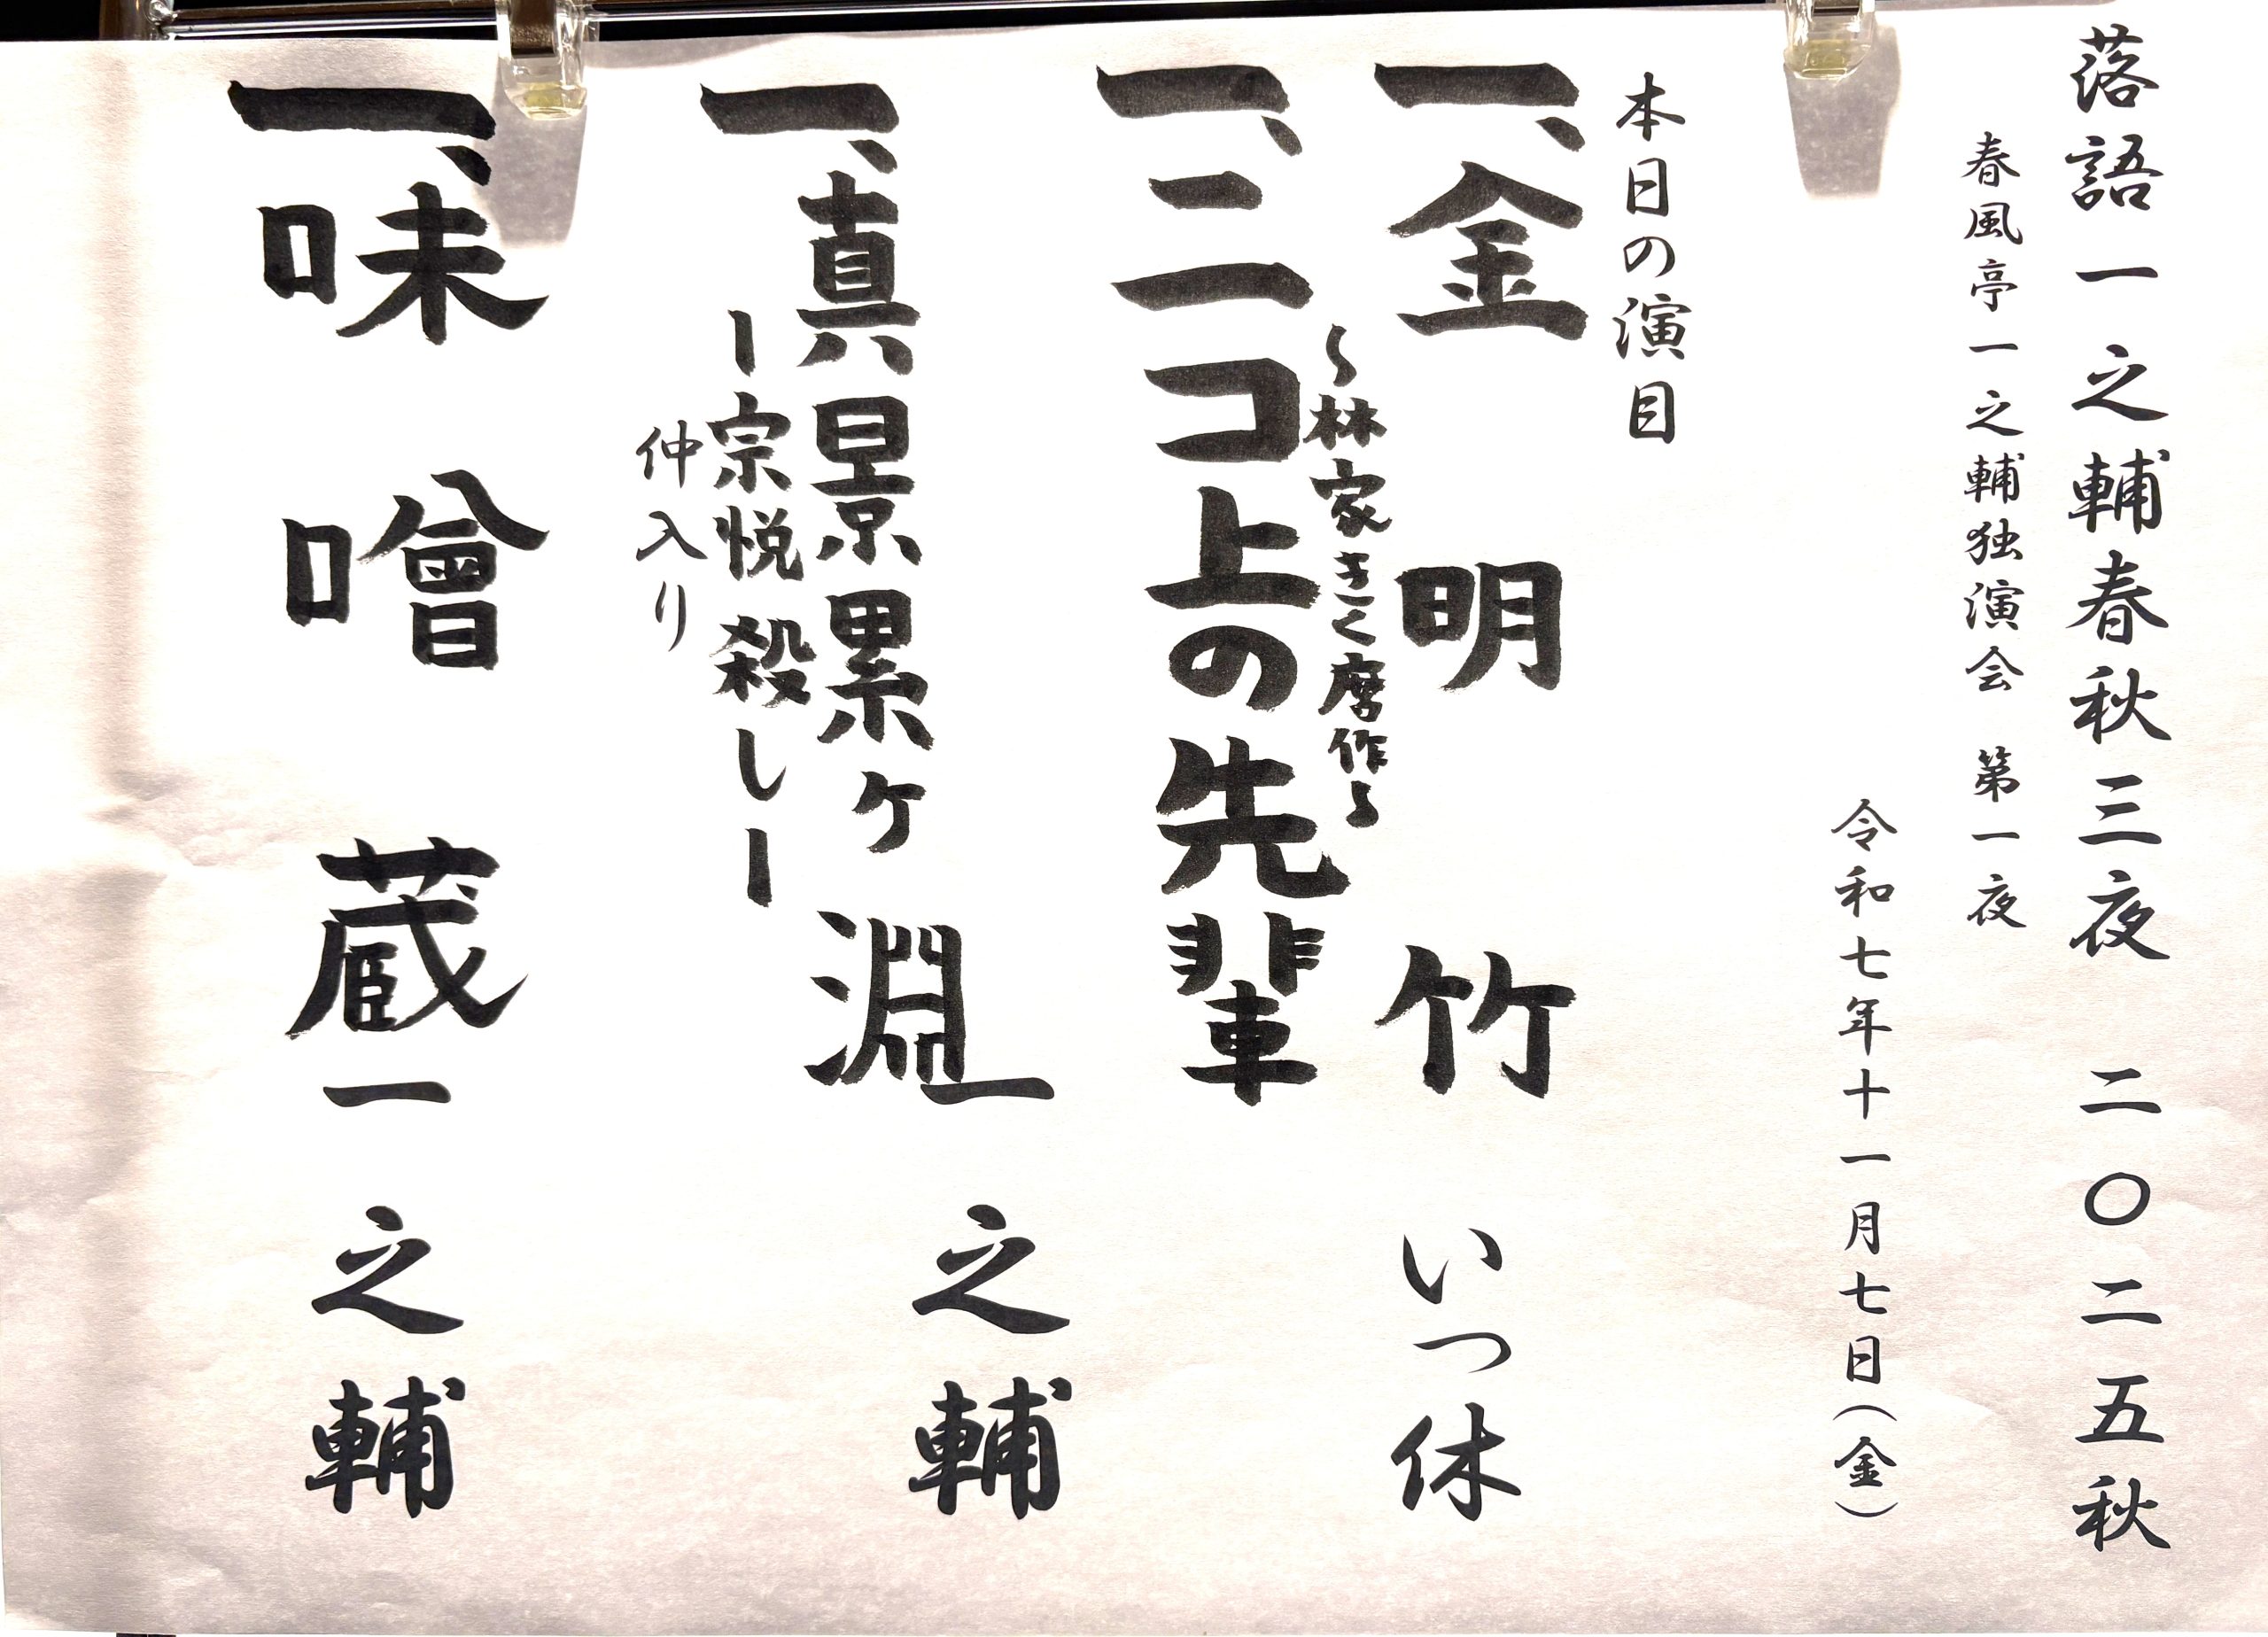 落語一之輔春秋三夜 二〇二五秋
春風亭一之輔独演会 第一夜
令和七年十一月七日(金)
本日の演目
一、金明竹 いつ休
〜林家きく麿作〜
一、二コ上の先輩
一、真景累ケ淵 一之輔
ー宗悦殺しー
仲入り
一、味噌蔵 一之輔